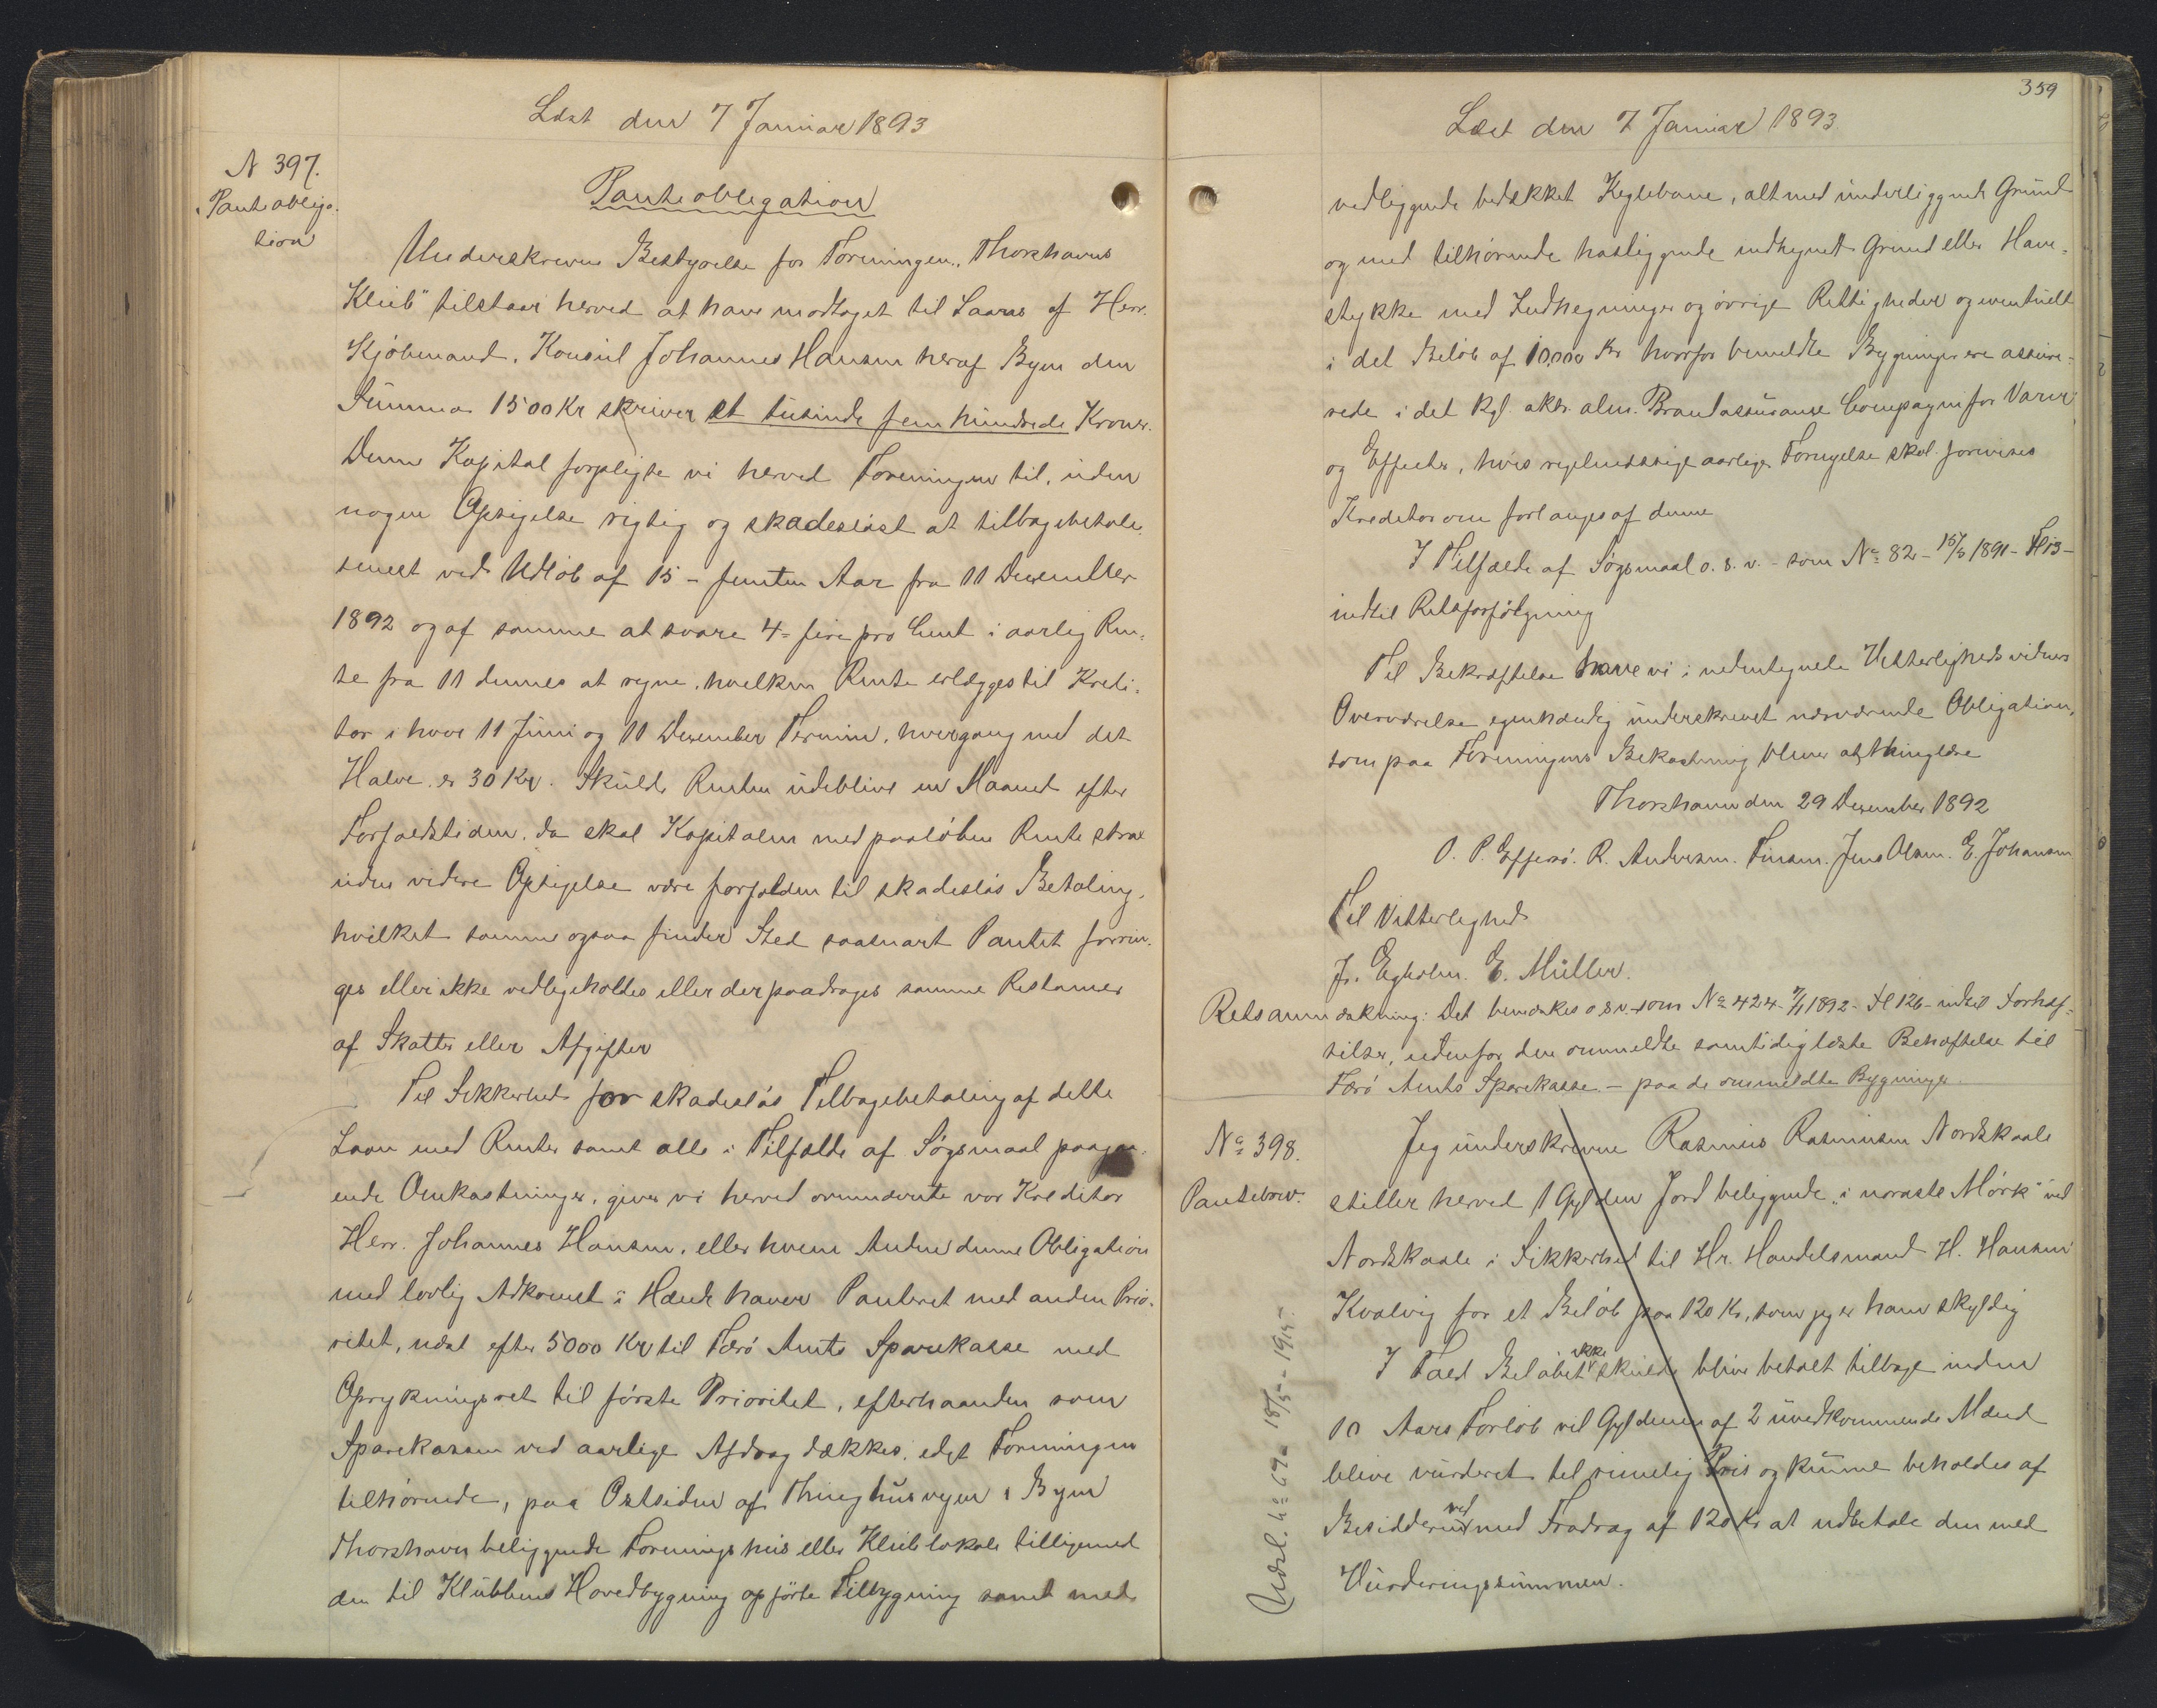 Læst den 7 Januar 1893
N 397.
Panteobliga-
tion
Panteobligation
Underskrevne Bestyrelse for Foreningen „Thorshavns
Klub" tilstaar herved at have modtaget til Laans af Herr.
Kjöbmand, Konsul Johannes Hansen heraf Byen den
Summa 1500 Kr skriver et tusinde fem hundrede Kroner.
Denne Kapital forpligte vi herved Foreningen til, uden
nogen Opsigelse rigtig og skadeslöst at tilbagebetale
senest ved Udlöb af 15 - femten Aar fra 11 December
1892 og af samme at svare 4 - fire pro Cent i aarlig Ren-
te fra 11 dennes at regne, hvilken Rente erlægges til Kredi-
tor i hver 11 Juni og 11 December Termin, hvergang med det
Halve er 30 Kr. Skulde Renten udeblive en Maaned efter
Forfaldstiden, da skal Kapitalen med paalöben Rente strax
uden videre Opsigelse være forfalden til skadeslös Betaling,
hvilket samme ogsaa finder Sted saasnart Pantet forrin-
ges eller ikke vedligeholdes eller der paadrages samme Restancer
af Skatter eller Afgifter
Til Sikkerhed for skadeslös Tilbagebetaling af dette
Laan med Renter samt alle i Tilfælde af Sögsmaal paagaa-
ende Omkostninger, giver vi herved ommeldte vor Kreditor
Herr. Johannes Hansen, eller hvem Anden denne Obligation
med lovlig Adkomst i Hænde haver Panteret med anden Prio-
ritet, næst efter 5000 Kr til Færö Amts Sparekasse med
Oprykningsret til förste Prioritet, efterhaanden som
Sparekassen ved aarlige Afdrag dækkes, i det Foreningen
tilhörende, paa Östsiden af Thinghusvejen i Byen
Thorshavn beliggende Forenings hus eller Klublokale tilligemed
den til Klubbens Hovedbygning opförte Tilbygning samt med
359
Læst den 7 Januar 1893
vedliggende bedækket Keglebane, alt med underliggende Grund
og med tilhörende hosliggende indhegnet Grund eller Have-
stykke med Indhegninger og övrige Rettigheder og eventuelt
i det Belöb af 10000 Kr hvorfor bemeldte Bygninger ere assure-
rede i det kgl. oktr. alm. Brandassurance Compagni for Varer
og Effecter, hvis regelmæssige aarlige Fornyelse skal forevises
Kreditor om forlanges af denne
I Tilfælde af Sögsmaal o. s. v. - som No 82 - 15/3 1891 - Fl 13 -
indtil Retsforfölgning
Til Bekræftelse have vi i undertegnede Vitterlighedsvidners
Overværelse egenhændig underskrevet nærværende Obligation,
som paa Foreningens Bekostning bliver at thinglæse
Thorshavn den 29 December 1892
O. P. Effersö. R. Andreasen. Finsen. Jens Olsen. E. Johansen
Til Vitterlighed
Jr. Egholm. E. Müller.
Retsanmærkning: Det bemærkes o s v. som No 424 - 7/1 1892 - Fl 126 - indtil Forhæf-
telser, udenfor den ommeldte samtidig læste Behæftelse til
Færö Amts Sparekasse - paa de ommeldte Bygninger.
No 398.
Pantebrev.
Jeg underskrevne Rasmus Rasmusen Nordskaale
stiller herved 1 Gylden Jord beliggende „i noraste Mörk" ved
Nordskaale i Sikkerhed til Hr. Handelsmand H. Hansen
Kvalvig for et Belöb paa 120 Kr, som jeg er ham skyldig
I Fald Belöbet ikke skulde blive betalt tilbage inden
10 Aars Forlöb vil Gyldenen af 2 uvedkommende Mænd
blive vurderet til rimelig Pris og kunne beholdes af
Besidderen ved med Fradrag af 120 Kr at udbetale den med
Vurderingssummen.
Udsl. No 69 - 18/5 - 1915.